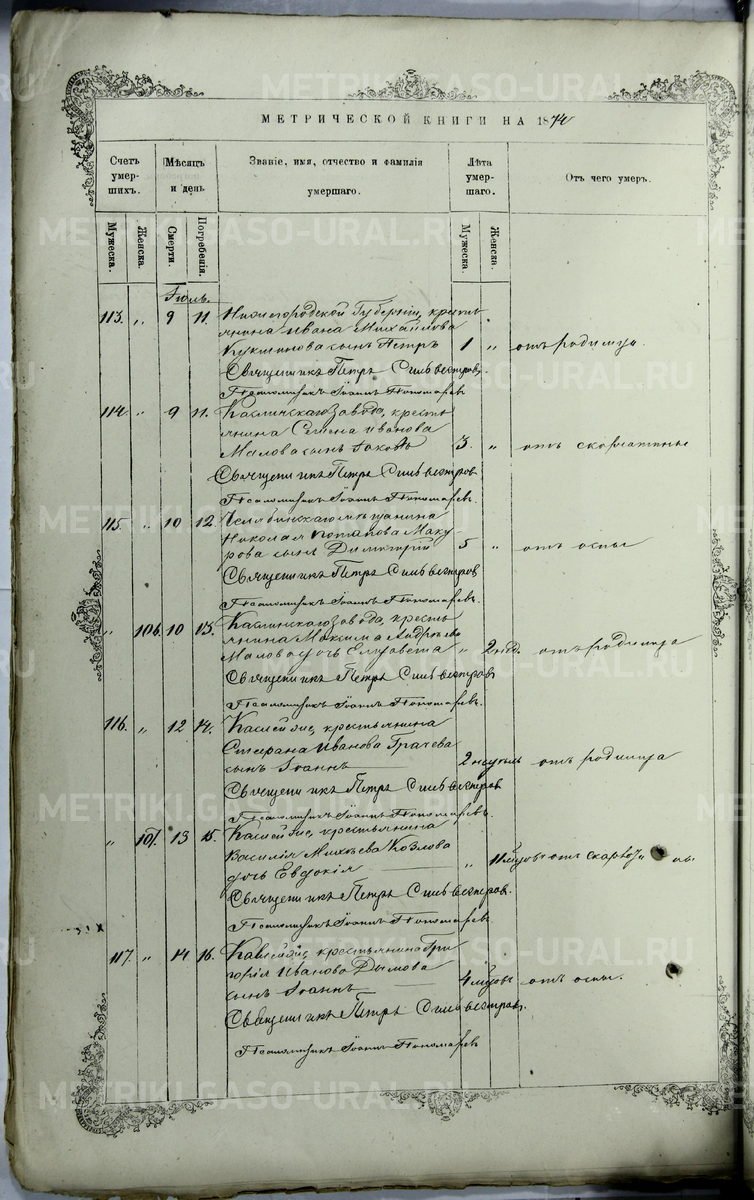 МЕТРИЧЕСКОЙ КНИГИ НА 1874
Счетъ умер- шихъ.
Мѣсяцъ и день
Званіе, имя, отчество и фамилія умершаго.
Лѣта умер- шаго.
Отъ чего умеръ.
Мужеска. Женска. Смерти. Погребенія. Мужеска. Женска.
Іюль.
113. „ 9 11. Нижегородской Губерніи, кресть
янина Ивана Михайлова
сынъ Петръ 1 „ отъ родимца
Священникъ Петръ Сильвестровъ.
Псаломщикъ Іоаннъ Пономаревъ
114. „ 9 11. Каслинскаго завода, кресть
янина Семена Иванова
Малова сынъ Іаковъ 3. „ отъ скорлатины
Священникъ Петръ Сильвестровъ
Псаломщикъ Іоаннъ Пономаревъ.
115. „ 10 12. Челябинскаго мѣщанина
Николая Потапова Маку
рова сынъ Димитрій 5 „ отъ оспы
Священникъ Петръ Сильвестровъ
Псаломщикъ Іоаннъ Пономаревъ.
„ 106. 10 13. Каслинскаго завода, кресть
янина Максима
Малова дочь Елизавета „ 2 нед. отъ родимца
Священникъ Петръ Сильвестровъ
Псаломщикъ Іоаннъ Пономаревъ.
116. „ 12 14. крестьянина
Стефана Иванова Грачева
сынъ Іоаннъ 2 недѣли отъ родимца
Священникъ Петръ Сильвестровъ
Псаломщикъ Іоаннъ Пономаревъ.
„ 107. 13 15. крестьянина
Василія Михѣева Козлова
дочь Евдокія „ отъ
Священникъ Петръ Сильвестровъ.
Псаломщикъ Іоаннъ Пономаревъ
117. „ 14 16. крестьянина Гри
горія Иванова Дымова
сынъ Іоаннъ отъ оспы.
Священникъ Петръ Сильвестровъ.
Псаломщикъ Іоаннъ Пономаревъ
METRIKI.GASO-URAL.RU